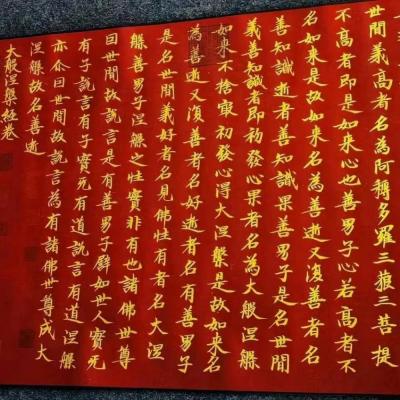 世間義高者名為阿耨多羅三藐三菩提
不高者即是如來心也善男子心若高者不
名如來是故如來名為善逝又復善者名
善知識逝者善知識果善男子是名世間
義善知識者即初發心果者名為大般涅槃
如來不捨最初發心得大涅槃是故如來名
為善逝又復善者名好逝者名有善男子
是名世間義好者名見佛性有者名大涅
槃善男子涅槃之性實非有也諸佛世尊
因世間故說言是有善男子譬如世人實无
有子說言有子實无有道說言有道涅槃
亦尒因世間故說言為有諸佛世尊成大
涅槃故名善逝
大般涅槃經卷